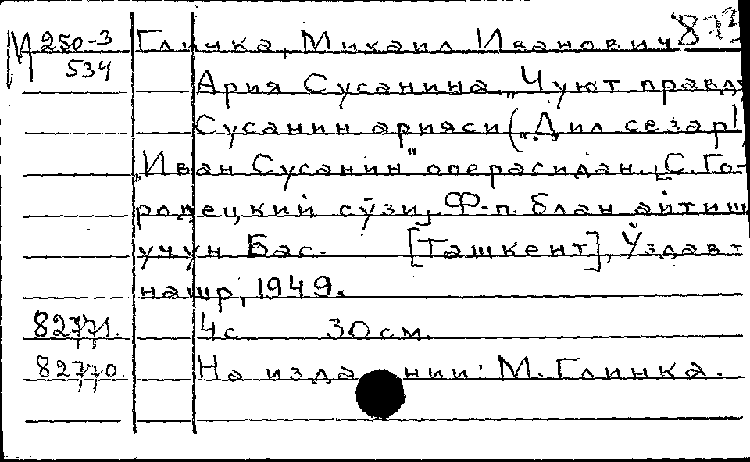 М 250-3 Глинка, Михаил Иванович
534
Ария Сусанина „Чуют правду
Сусанин арияси („Дил сезар!
„Иван Сусанин" операсидан. С. Го-
родецкий сўзи, Ф-п. блан айтиш
учун Бас. [Ташкент], Ўздав-
нашр, 1949.
82771. 4с 30см.
82770. На издании: М. Глинка.